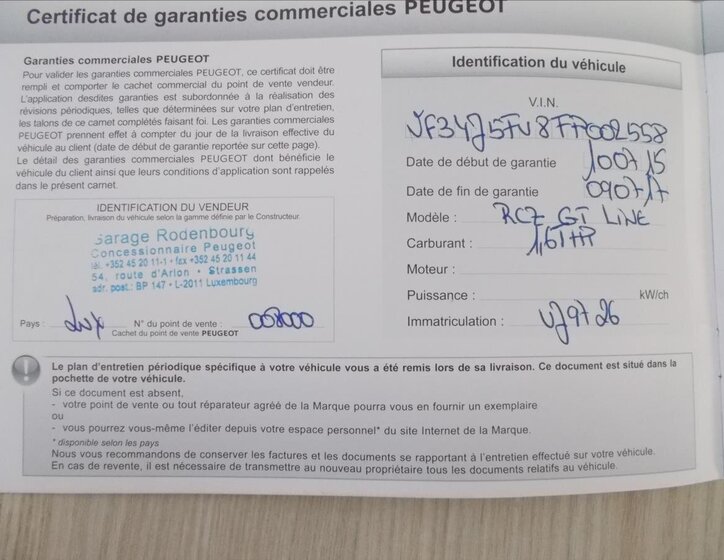 Certificat de garanties commerciales PEUGEOT
Garanties commerciales PEUGEOT
Pour valider les garanties commerciales PEUGEOT, ce certificat doit être
rempli et comporter le cachet commercial du point de vente vendeur.
L'application desdites garanties est subordonnée à la réalisation des
révisions périodiques, telles que déterminées sur votre plan d'entretien,
les talons de ce carnet complétés faisant foi. Les garanties commerciales
PEUGEOT prennent effet à compter du jour de la livraison effective du
véhicule au client (date de début de garantie reportée sur cette page).
Le détail des garanties commerciales PEUGEOT dont bénéficie le
véhicule du client ainsi que leurs conditions d'application sont rappelés
dans le présent carnet.
IDENTIFICATION DU VENDEUR
Préparation, livraison du véhicule selon la gamme définie par le Constructeur.
Garage Rodenbourg
Concessionnaire Peugeot
tél. +352 45 20 11-1 • fax +352 45 20 11 44
54, route d'Arlon • Strassen
adr. post.: BP 147 • L-2011 Luxembourg
Pays : Lux N° du point de vente : 008000
Cachet du point de vente PEUGEOT
Identification du véhicule
V.I.N.
VF34J5FU8FP002558
Date de début de garantie 100715
Date de fin de garantie 090717
Modèle : RCZ GT LINE
Carburant :
Moteur :
Puissance : kW/ch
Immatriculation :
Le plan d'entretien périodique spécifique à votre véhicule vous a été remis lors de sa livraison. Ce document est situé dans la
pochette de votre véhicule.
Si ce document est absent,
- votre point de vente ou tout réparateur agréé de la Marque pourra vous en fournir un exemplaire
ou
- vous pourrez vous-même l'éditer depuis votre espace personnel* du site Internet de la Marque.
* disponible selon les pays
Nous vous recommandons de conserver les factures et les documents se rapportant à l'entretien effectué sur votre véhicule.
En cas de revente, il est nécessaire de transmettre au nouveau propriétaire tous les documents relatifs au véhicule.